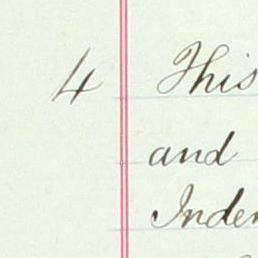 4 This
and
Inden